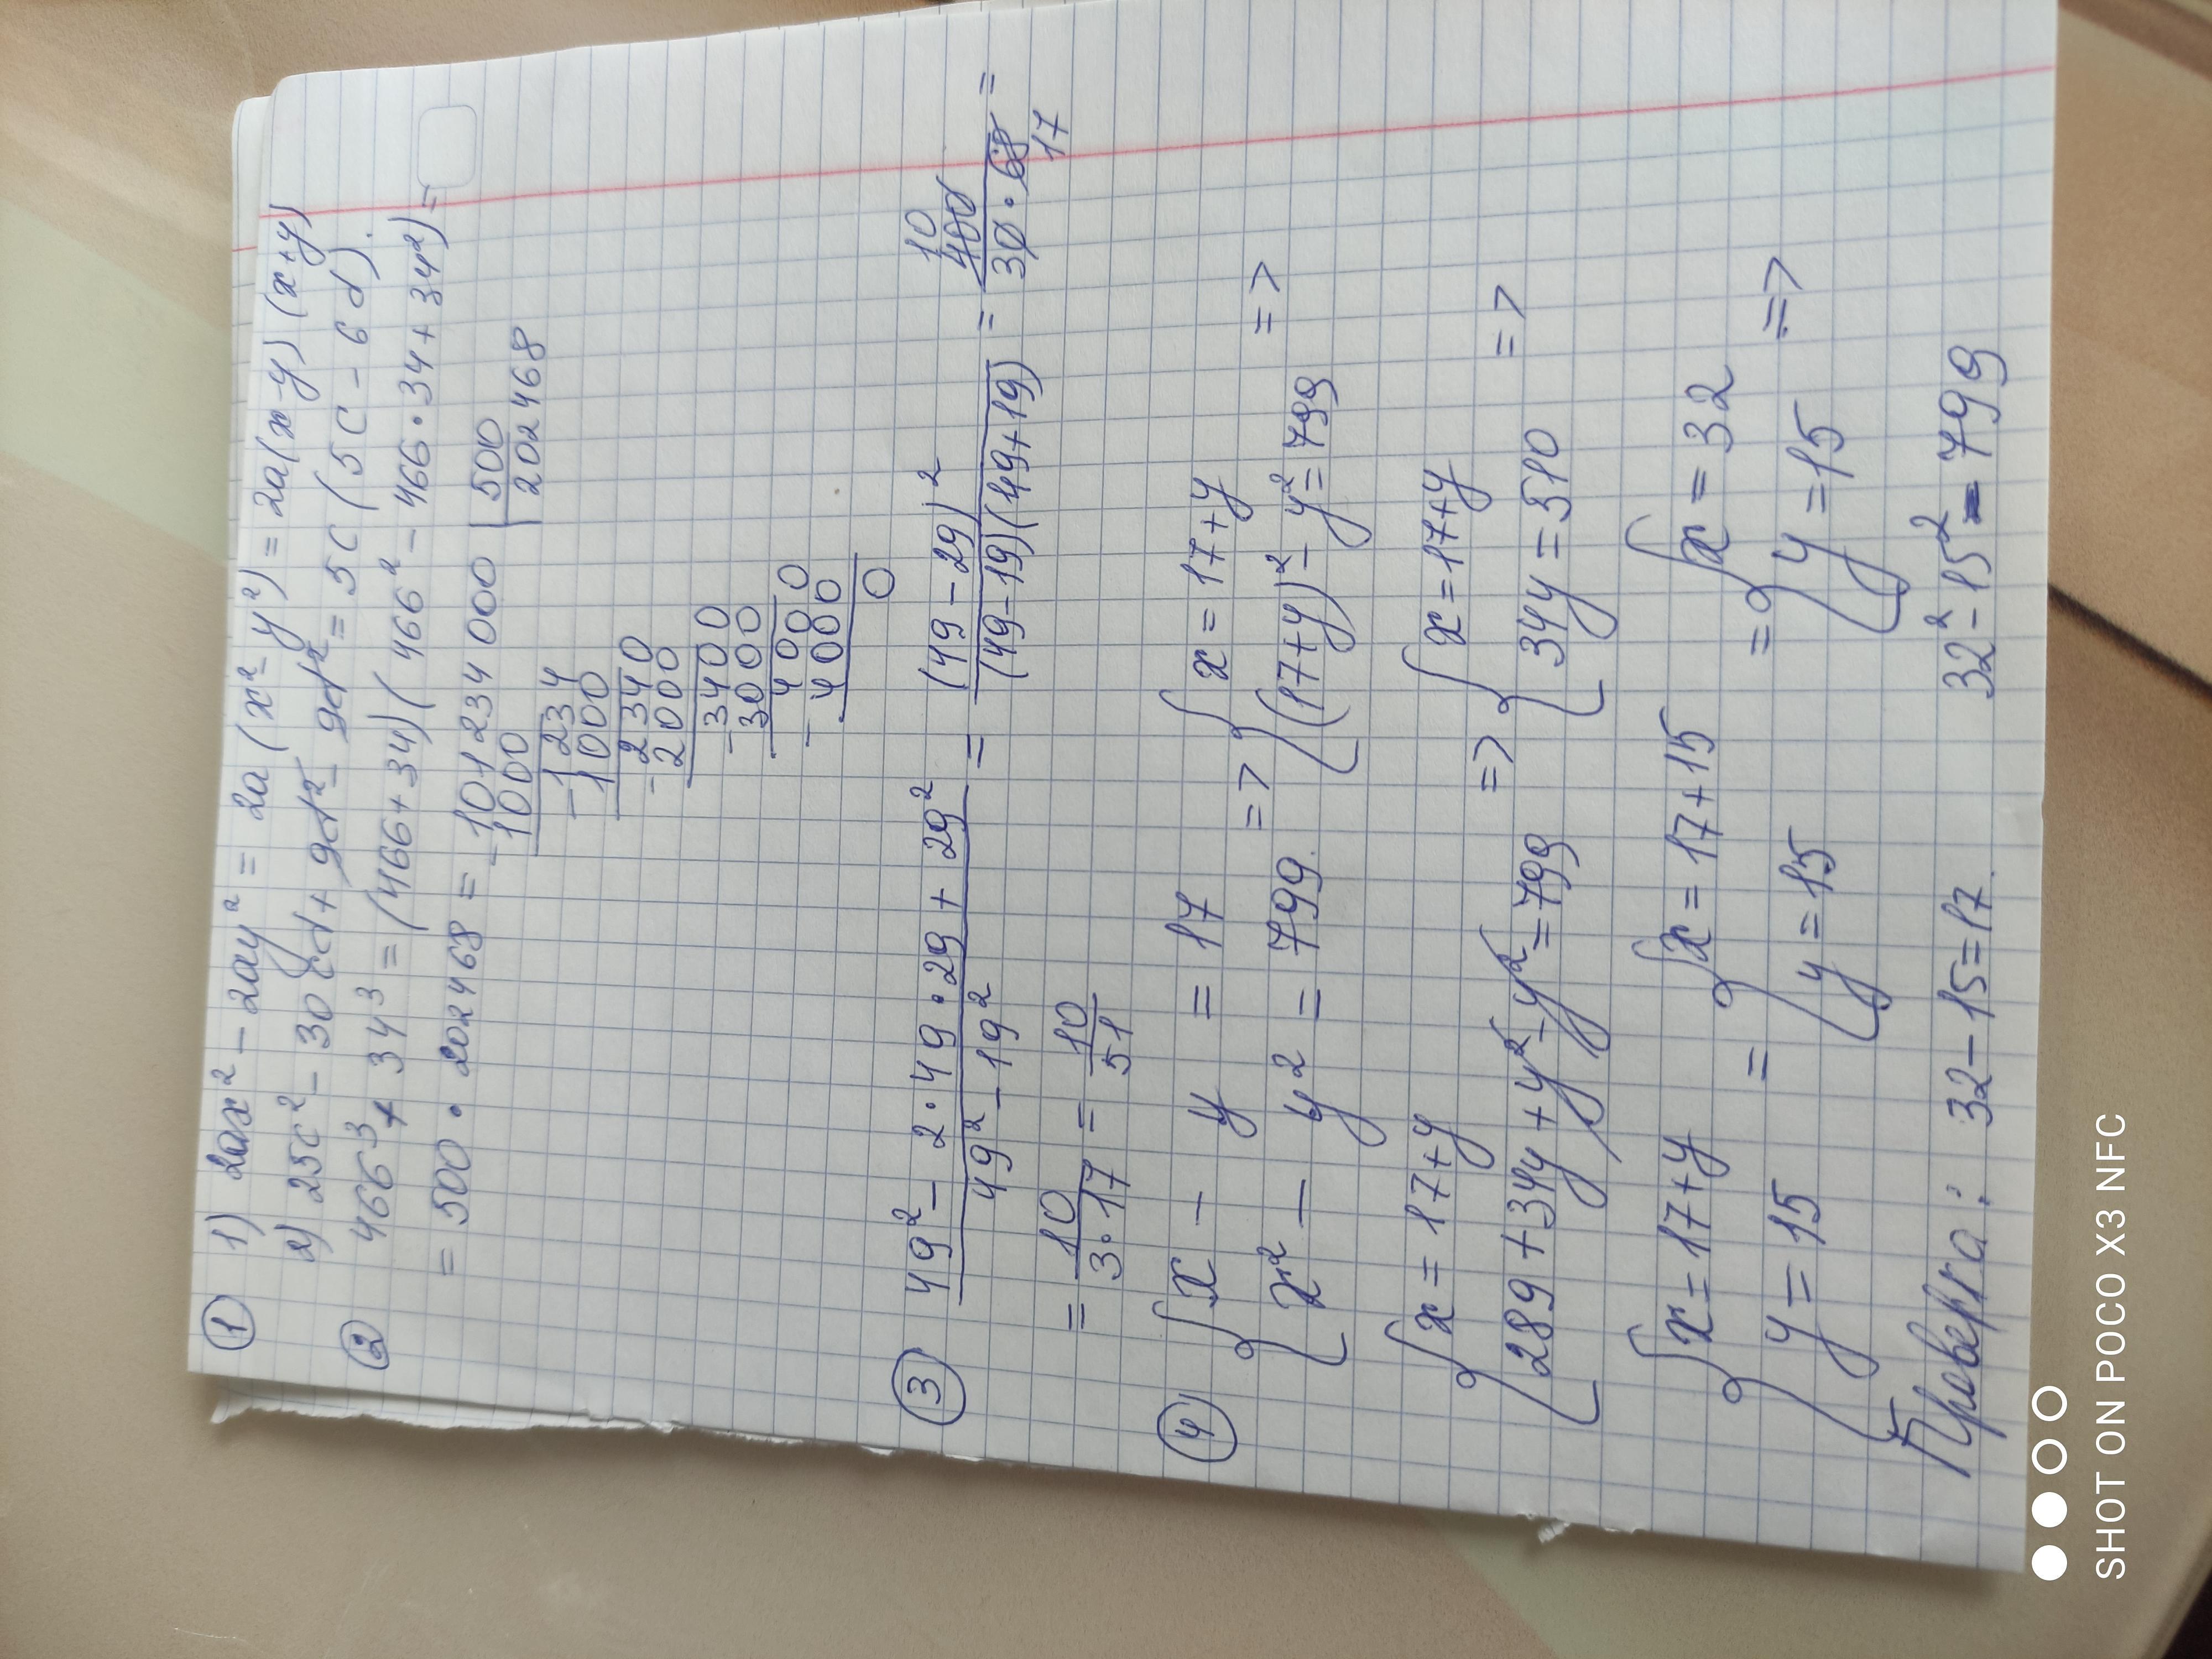 ① 1) 2ax² - 2ay² = 2a (x² - y²) = 2a(x-y)(x+y)
2) 25c² - 30cd + 9d² - 9d² = 5c (5c - 6d).
② 466³ + 34³ = (466+34)(466² - 466·34 + 34²) =
= 500 · 202468 = 101234000 | 500
1000 202468
-1234
1000
-2340
2000
-3400
3000
-4000
4000
0
③ (49² - 2·49·29 + 29²)/(49² - 19²) = (49-29)²/((49-19)(49+19)) = 400/(30·68) =
10
17
= 10/(3·17) = 10/51
④ { x - y = 17 => { x = 17+y =>
x² - y² = 799. (17+y)² - y² = 799
{ x = 17+y => { x = 17+y =>
289 + 34y + y² - y² = 799 34y = 510
{ x = 17+y = { x = 17+15 = { x = 32 =>
y = 15 y = 15 y = 15
Проверка: 32-15=17. 32²-15²=799
SHOT ON POCO X3 NFC